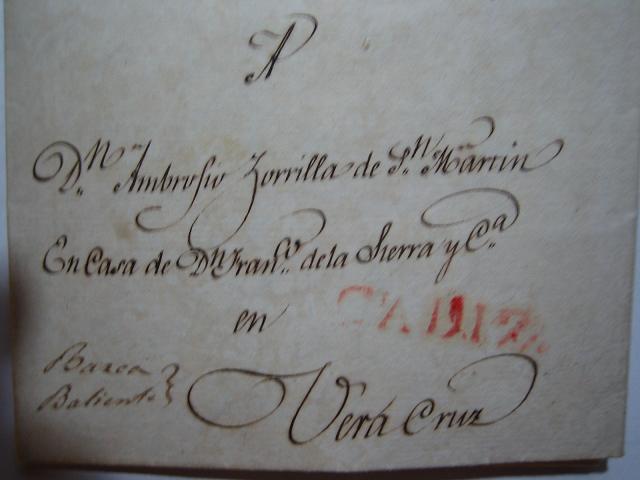 A
Dn. Ambrosio Zorrilla de Sn. Martin
En Casa de Dn Frano. de la Sierra y Ca.
en
Barca
Baliente
Vera Cruz